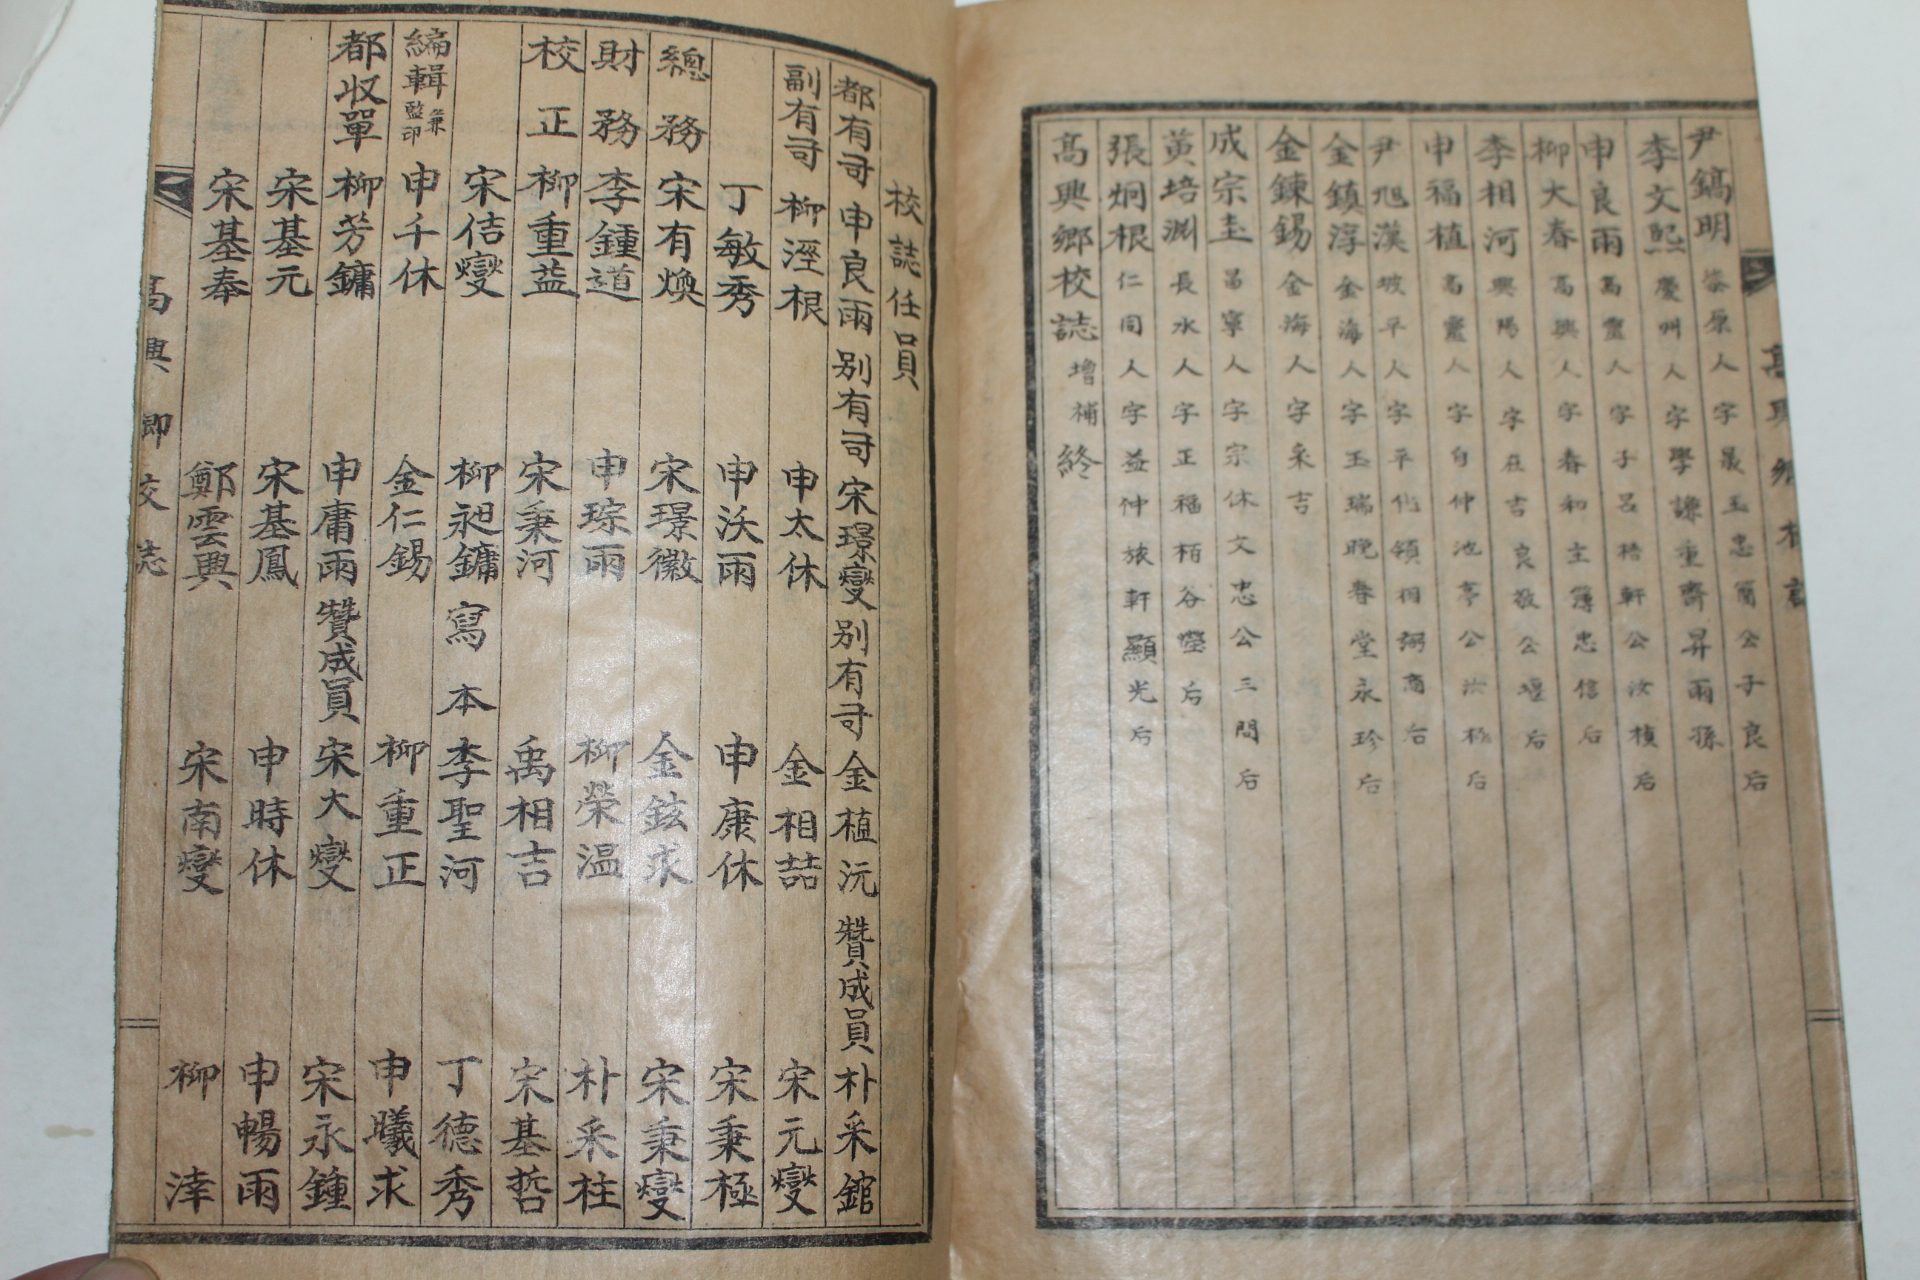 尹鎬明 恭原人字晟玉忠簡公子良后
李文熙 慶州人字學謙重齋昇雨孫
申良雨 高靈人字子呂梧軒公汝楨后
柳大春 高興人字春和主簿忠信后
李相河 興陽人字在吉良敬公堰后
申福植 高靈人字自仲池亭公汝極后
尹旭漢 坡平人字平化領相弼商后
金鎮淳 金海人字玉瑞晩春堂永珍后
金鍊錫 金海人字采吉
成宗圭 昌寧人字宗休文忠公三問后
黃培淵 長水人字正福栢谷瑩后
張炯根 仁同人字益仲旅軒顯光后
高興鄉校誌 增補 終
校誌任員
都有司 申良雨 別有司 宋璟燮 別有司 金植沅 贊成員 朴采錧
副有司 柳瀅根 申太休 金相喆 宋元燮
丁敏秀 申沃雨 申康休 宋秉極
總務 宋有煥 宋璟徽 金鉉求 宋秉燮
財務 李鍾道 申琮雨 柳榮温 朴采柱
校正 柳重益 宋秉河 禹相吉 宋基哲
宋佶燮 柳昶鏞 寫本 李聖河 丁德秀
編輯兼監印 申千休 金仁錫 柳重正 申曦求
都収單 柳芳鏞 申庸雨 贊成員 宋大燮 宋永鍾
宋基元 宋基鳳 申時休 申暢雨
宋基奉 鄭雲興 宋南燮 柳涬
高興鄉校誌